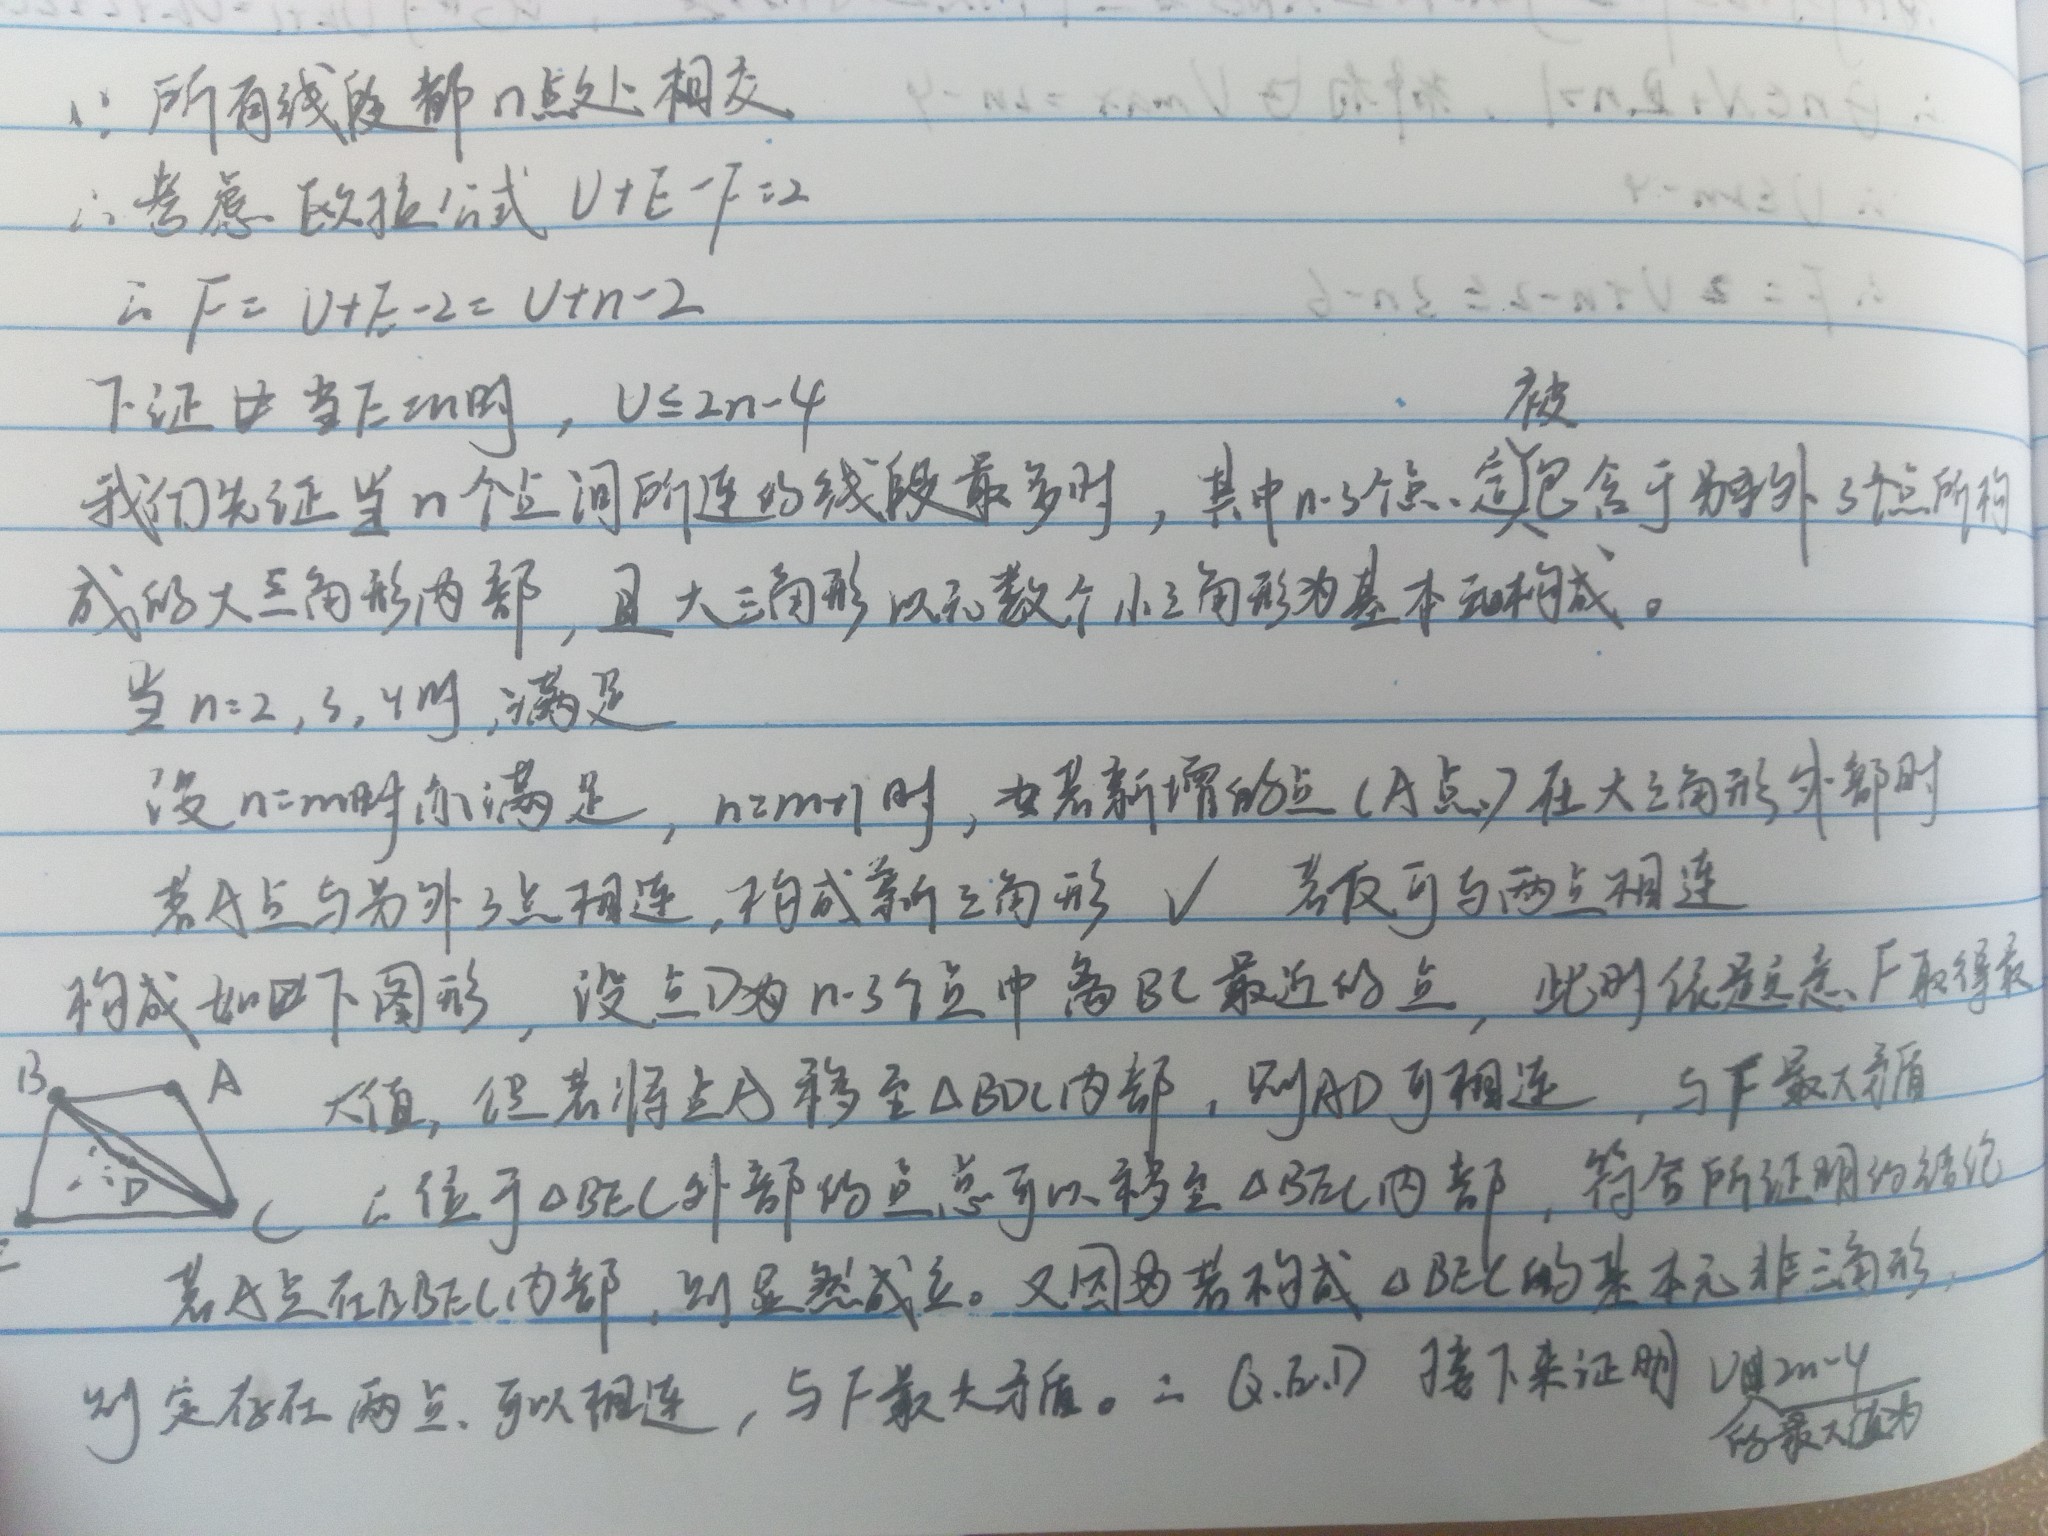 ∵ 所有线段都n点处相交
∴ 考虑 欧拉公式 U+E-F=2
∴ F= U+E-2= U+n-2
下证 当E=n时，U≤2n-4
被
我们先证当n个点间所连的线段最多时，其中n-3个点定包含于另外3个点所构
成的大三角形内部，且大三角形以无数个小三角形为基本元构成。
当n=2,3,4时,满足
设n=m时亦满足，n=m+1时，若新增的点（A点）在大三角形外部时
若A点与另外3点相连,构成新三角形 ✓ 若仅可与两点相连
构成如下图形，设点D为n-3个点中离BC最近的点，此时依题意F取得最
B A
大值，但若将点A移至△BDC内部，则AD可相连，与F最大矛盾
D
C ∴位于△BEC外部的点总可以移至△BEC内部，符合所证明的结论
E
若A点在△BEC内部，则显然成立。又因为若构成△BEC的基本元非三角形，
则定存在两点可以相连，与F最大矛盾。∴ Q.E.D 接下来证明 U 2n-4
的最大值为